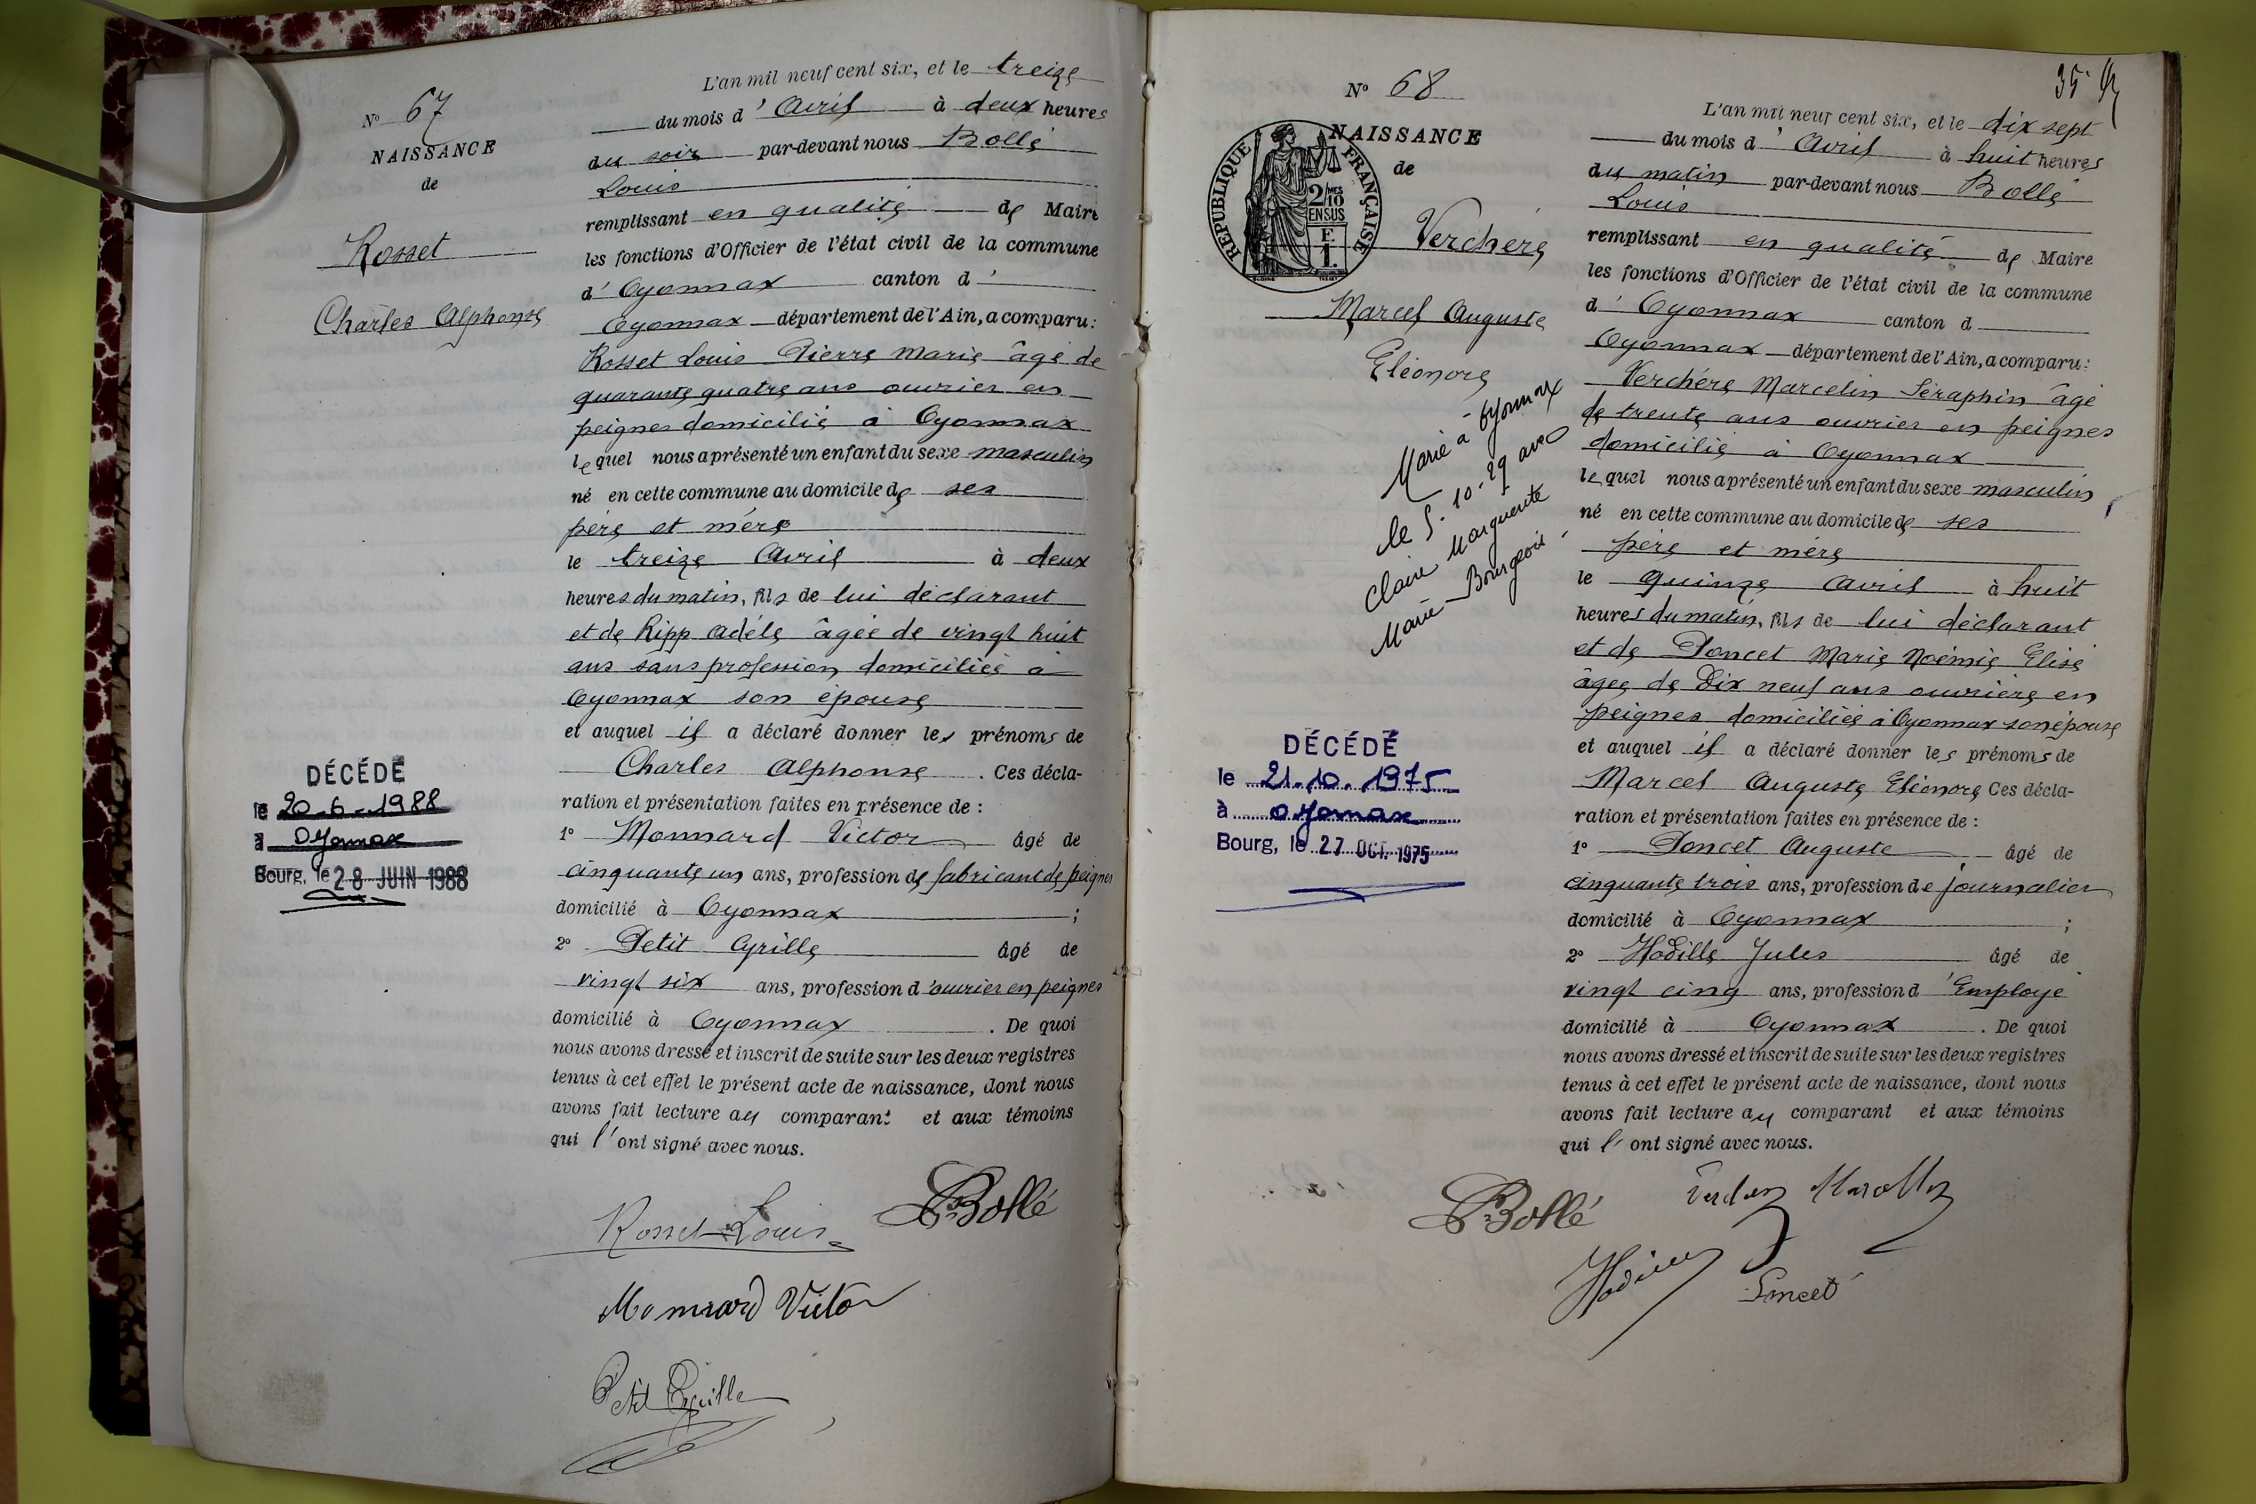 L'an mil neuf cent six, et le treize
N° 67
du mois d'Avril à deux heures
NAISSANCE
du soir par-devant nous Bollé
de
Louis
remplissant en qualité de Maire
Rosset
les fonctions d'Officier de l'état civil de la commune
d'Oyonnax canton d'
Charles Alphonse
Oyonnax département de l'Ain, a comparu:
Rosset Louis Pierre Marie âgé de
quarante quatre ans ouvrier en
peignes domicilié à Oyonnax
lequel nous a présenté un enfant du sexe masculin
né en cette commune au domicile de ses
père et mère
le treize Avril à deux
heures du matin, fils de lui déclarant
et de Ripp Adèle âgée de vingt huit
ans sans profession domiciliée à
Oyonnax son épouse
et auquel il a déclaré donner les prénoms de
Charles Alphonse. Ces décla-
ration et présentation faites en présence de :
1° Monnard Victor âgé de
cinquante un ans, profession de fabricant de peignes
domicilié à Oyonnax ;
2° Petit Cyrille âgé de
vingt six ans, profession d'ouvrier en peignes
domicilié à Oyonnax. De quoi
nous avons dressé et inscrit de suite sur les deux registres
tenus à cet effet le présent acte de naissance, dont nous
avons fait lecture au comparant et aux témoins
qui l'ont signé avec nous.
DÉCÉDÉ
le 20-6-1988
à Oyonnax
Bourg, le 28 JUIN 1988
Rosset Louis
Bollé
Monnard Victor
Petit Cyrille
35
N° 68
L'an mil neuf cent six, et le dix sept
NAISSANCE
du mois d'Avril à huit heures
de
du matin par-devant nous Bollé
Louis
RÉPUBLIQUE FRANÇAISE
2/10 MES
EN SUS
F.
1.
Verchère
remplissant en qualité de Maire
les fonctions d'Officier de l'état civil de la commune
Marcel Auguste
d'Oyonnax canton d
Eléonore
Oyonnax département de l'Ain, a comparu:
Verchère Marcelin Séraphin âgé
de trente ans ouvrier en peignes
domicilié à Oyonnax
lequel nous a présenté un enfant du sexe masculin
né en cette commune au domicile de ses
père et mère
le quinze Avril à huit
heures du matin, fils de lui déclarant
et de Poncet Marie Noémie Elise
âgée de Dix neuf ans ouvrière en
peignes domiciliée à Oyonnax son épouse
et auquel il a déclaré donner les prénoms de
Marcel Auguste Eléonore Ces décla-
ration et présentation faites en présence de :
1° Poncet Auguste âgé de
cinquante trois ans, profession de journalier
domicilié à Oyonnax ;
2° Hodille Jules âgé de
vingt cinq ans, profession d'Employé
domicilié à Oyonnax. De quoi
nous avons dressé et inscrit de suite sur les deux registres
tenus à cet effet le présent acte de naissance, dont nous
avons fait lecture au comparant et aux témoins
qui l'ont signé avec nous.
Marié à Oyonnax
le 5.10.29 avec
Claire Marguerite
Marie Bourgeois.
DÉCÉDÉ
le 21.10.1975
à Oyonnax
Bourg, le 27 OCT. 1975
Bollé
Poncet